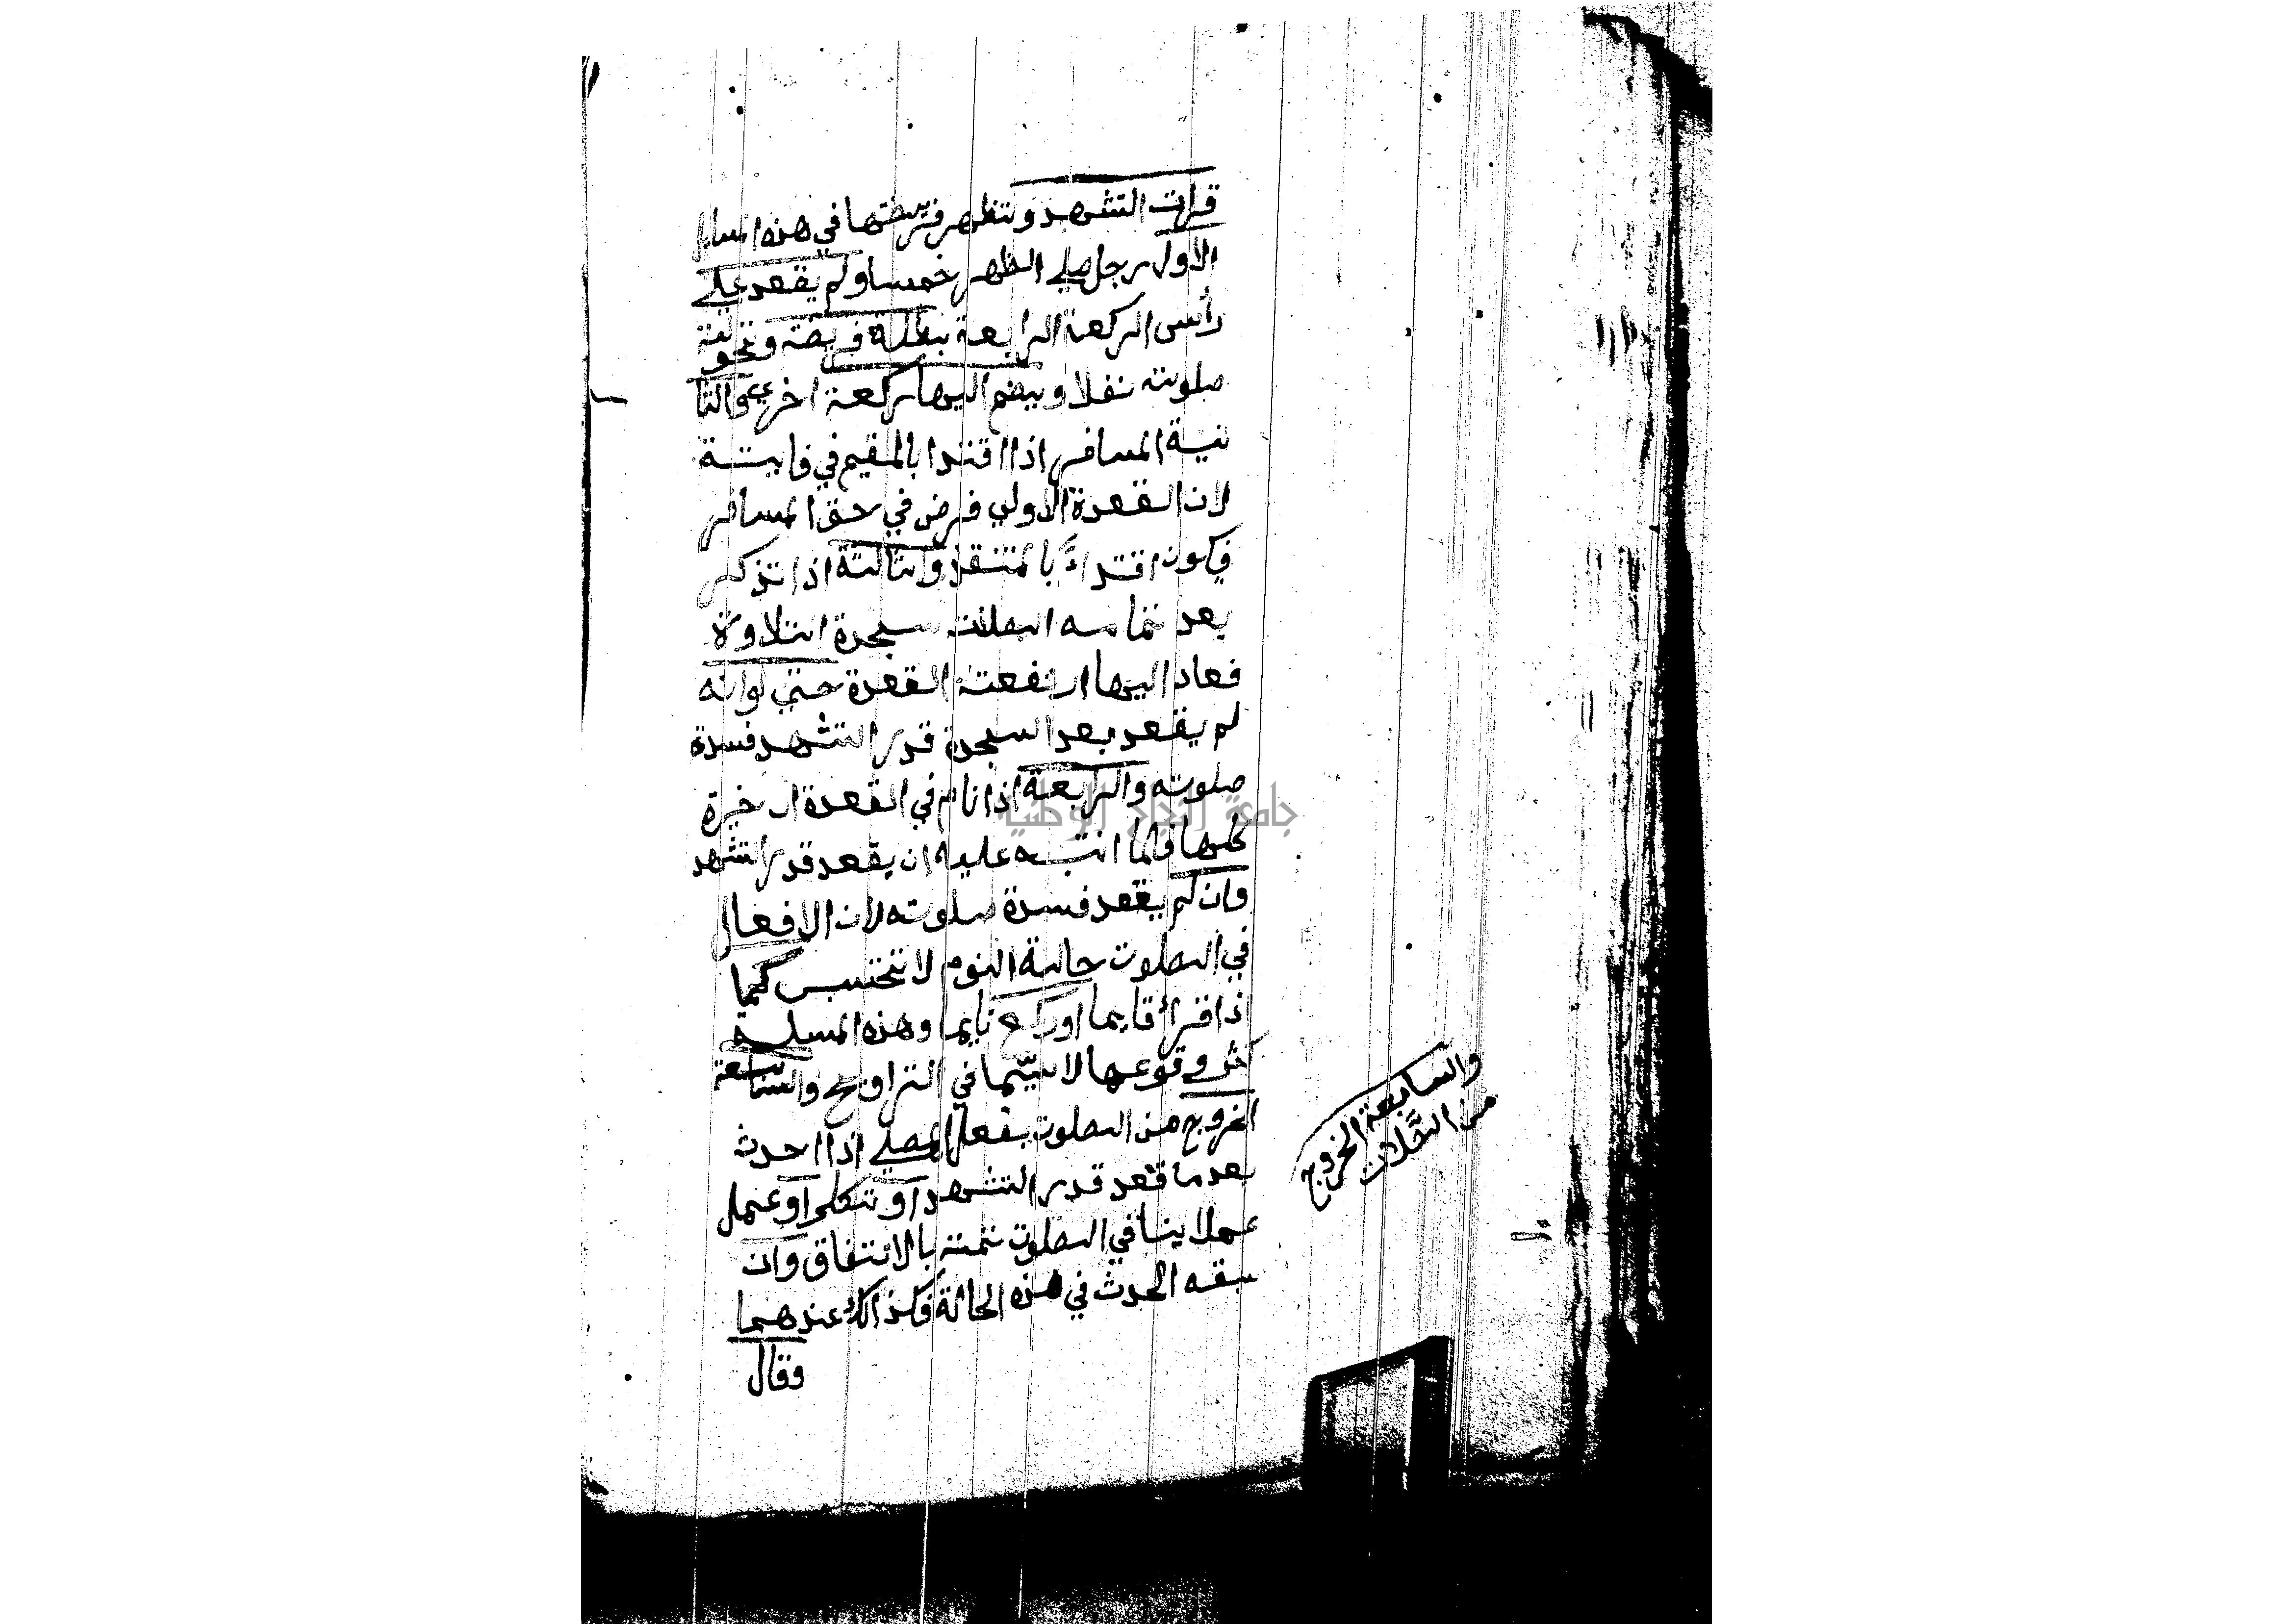 قرات التشهد وتظهر فرضيتها في هذه المسايل
الاول رجل صلي الظهر خمسا ولم يقعد علي
رأس الركعة الرابعة بطلة فريضة وتحولة
صلوته نفلا ويضم اليها ركعة اخري والثا
نية المسافر اذا اقتدا بالمقيم في فايتة
لان القعدة الاولي فرض في حق المسافر
فيكون اقتداءً بالمتنفذ والثالثة اذا تذكر
بعد تمامه الصلات سجدة التلاوة
فعاد اليها ارتفعت القعدة حتي لو انه
لم يقعد بعد السجدة قدر التشهد فسدة
صلوته والرابعة اذا نام في القعدة الاخيرة
كلها فلما انتبه عليه ان يقعد قدر التشهد
وان لم يقعد فسدة صلوته لان الافعال
في الصلوت حالة النوم لا تحتسب كما
اذا قرأ قايما او ركع نايما وهذه المسلة
كثر وقوعها لا سيّما في التراويح والسابعة
الخروج من الصلوت بفعل المصلي اذا احدث
بعدما قعد قدر التشهد او تكلم او عمل
عملا ينافي الصلوت تمت بالاتفاق وان
سبقه الحدث في هذه الحالة فكذالك عندهما
فقال
والسابعة الخروج
من الصَّلات
جامعة النجاح الوطنية